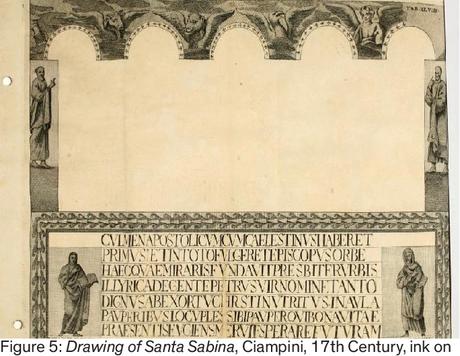 TAB. XLVIII
CVLMEN APOSTOLICVM CVM CAELESTINVS HABERET
PRIMVS ET IN TOTO FVLGERET EPISCOPVS ORBE
HAEC QVAE MIRARIS FVNDAVIT PRESBITER VRBIS
ILLYRICA DE GENTE PETRVS VIR NOMINE TANTO
DIGNVS AB EXORTV CHRISTI NVTRITVS IN AVLA
PAVPERIBVS LOCVPLES SIBI PAVPER QVI BONA VITAE
PRAESENTIS FVGIENS MERVIT SPERARE FVTVRAM
Figure 5: Drawing of Santa Sabina, Ciampini, 17th Century, ink on